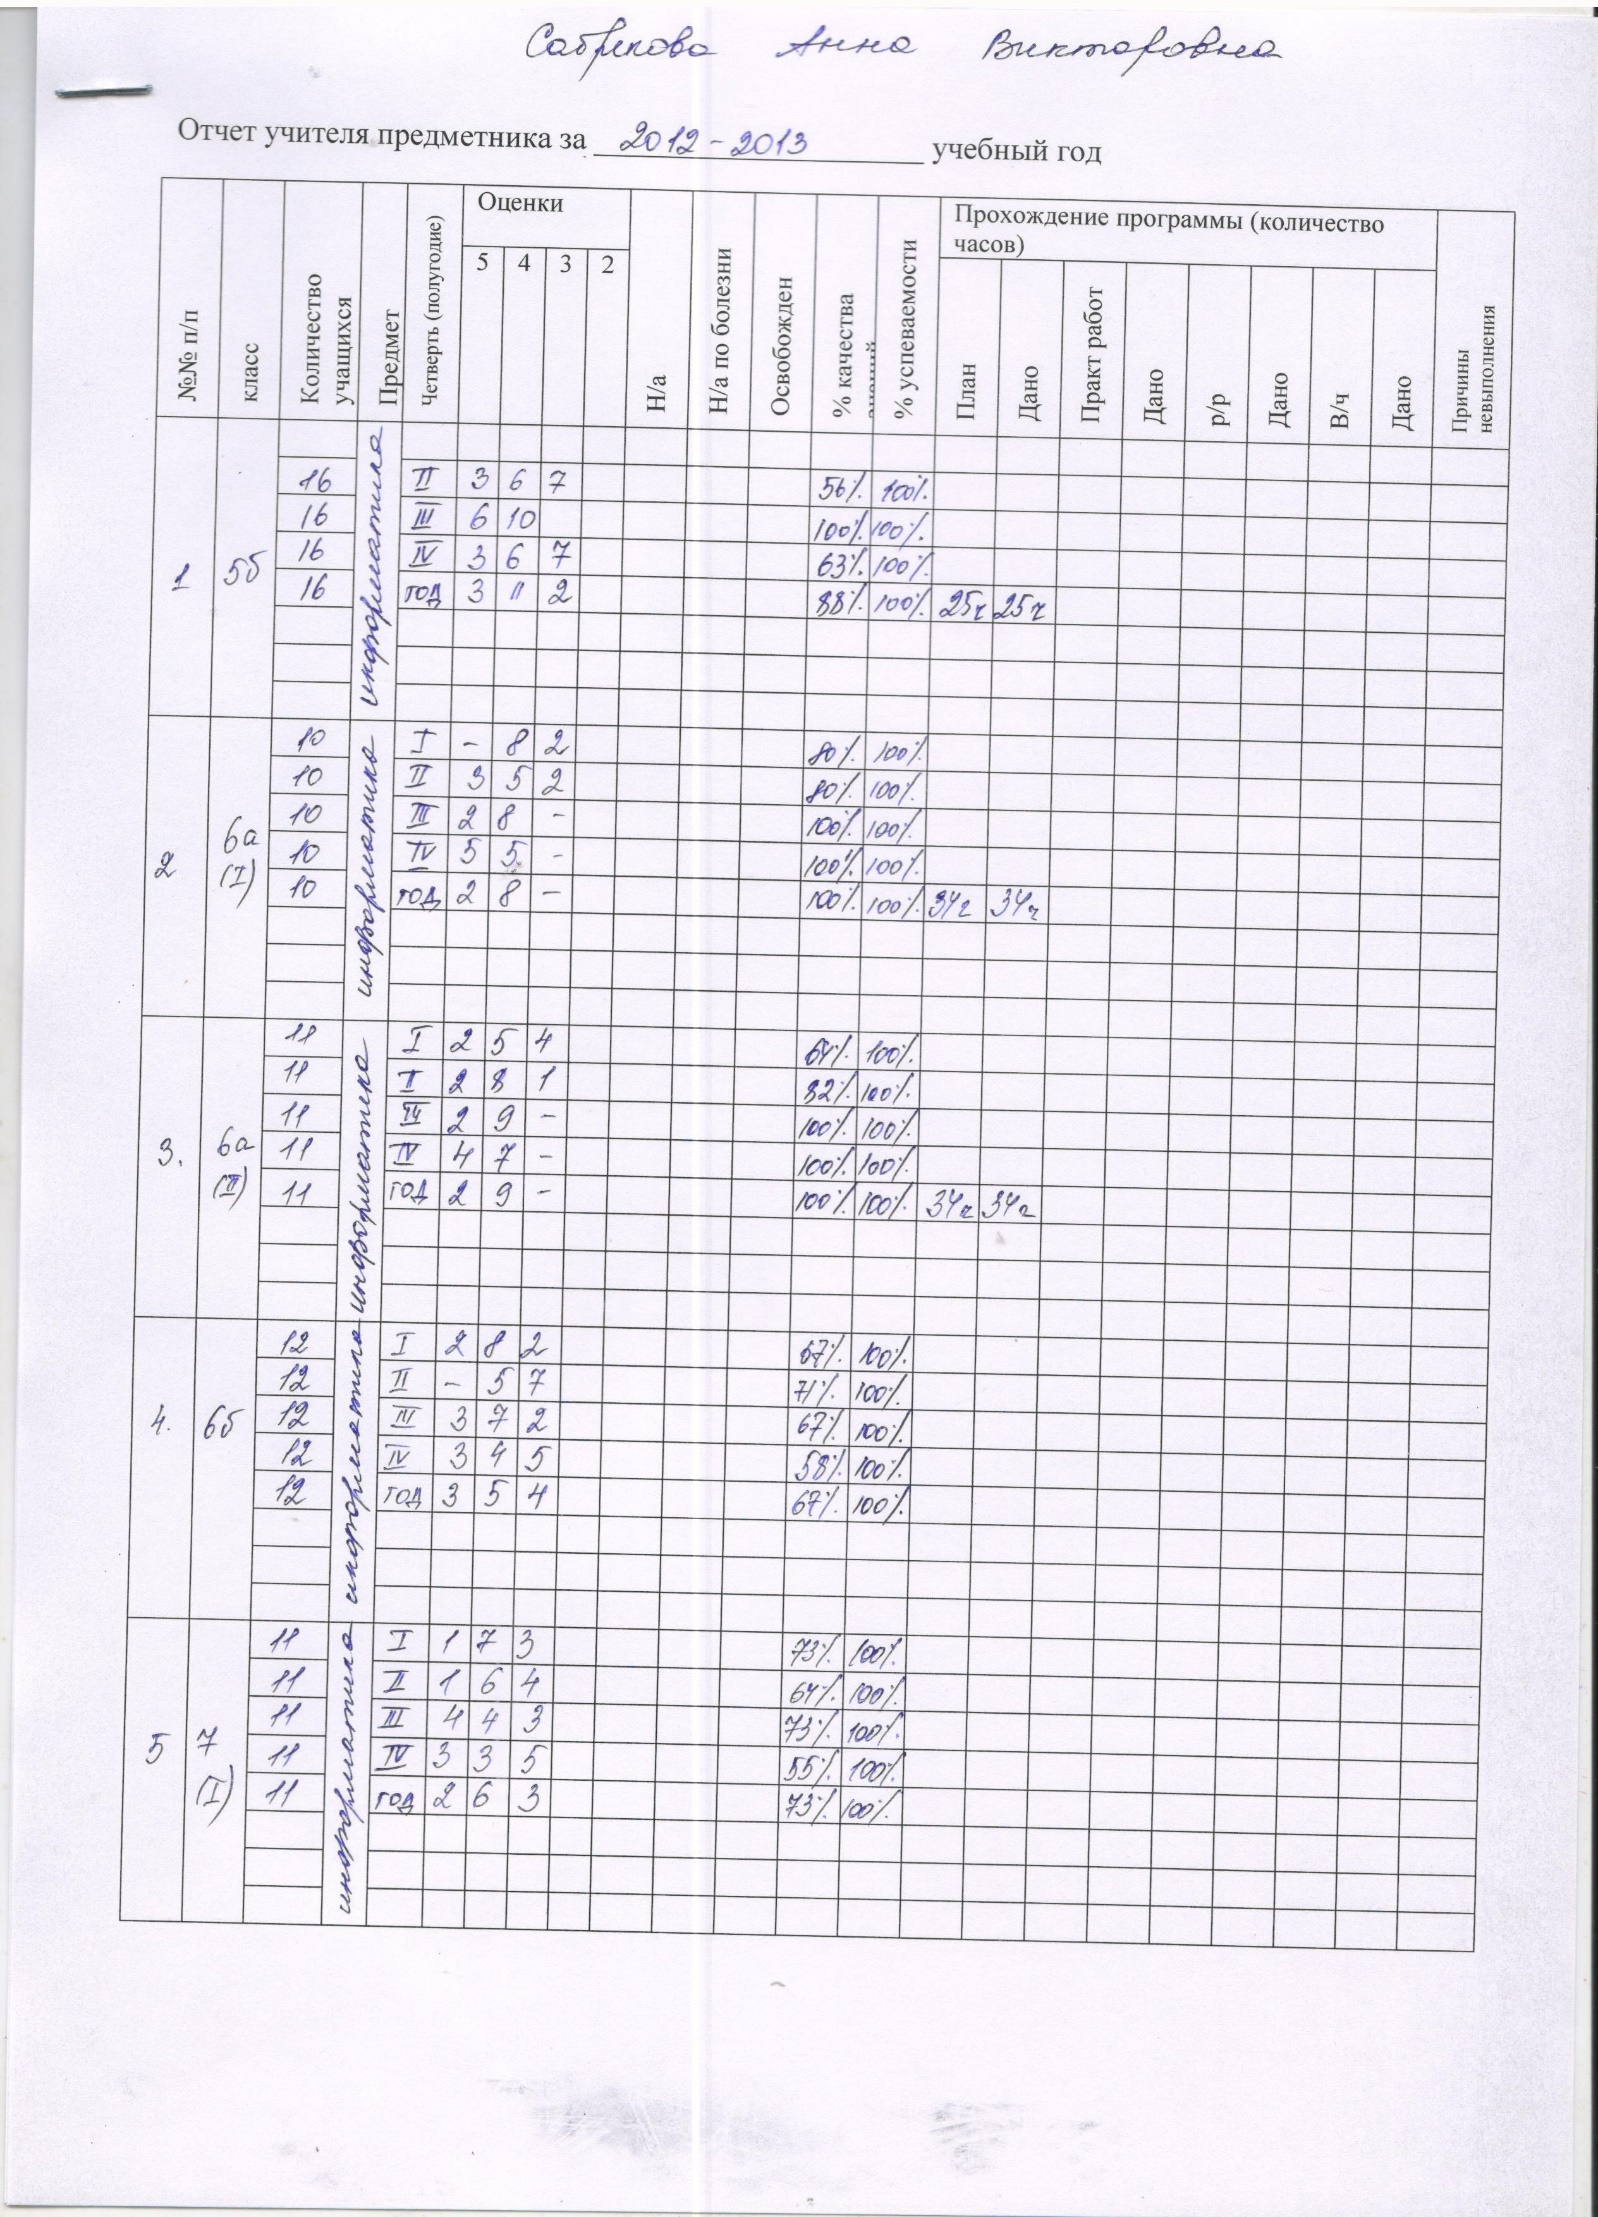 Сабрекова Анна Викторовна
Отчет учителя предметника за 2012-2013 учебный год
№№ п/п класс Количество учащихся Предмет Четверть (полугодие) Оценки Н/а Н/а по болезни Освобожден % качества % успеваемости Прохождение программы (количество часов) Причины невыполнения
5 4 3 2 План Дано Практ работ Дано р/р Дано В/ч Дано
1 5б информатика
16 II 3 6 7 56% 100%
16 III 6 10 100% 100%
16 IV 3 6 7 63% 100%
16 год 3 11 2 88% 100% 25ч 25ч
2 6а (I) информатика
10 I - 8 2 80% 100%
10 II 3 5 2 80% 100%
10 III 2 8 - 100% 100%
10 IV 5 5 - 100% 100%
10 год 2 8 - 100% 100% 34ч 34ч
3. 6а (II) информатика
11 I 2 5 4 64% 100%
11 II 2 8 1 82% 100%
11 III 2 9 - 100% 100%
11 IV 4 7 - 100% 100%
11 год 2 9 - 100% 100% 34ч 34ч
4. 6б информатика
12 I 2 8 2 67% 100%
12 II - 5 7 71% 100%
12 III 3 7 2 67% 100%
12 IV 3 4 5 58% 100%
12 год 3 5 4 67% 100%
5 7 (I) информатика
11 I 1 7 3 73% 100%
11 II 1 6 4 64% 100%
11 III 4 4 3 73% 100%
11 IV 3 3 5 55% 100%
11 год 2 6 3 73% 100%